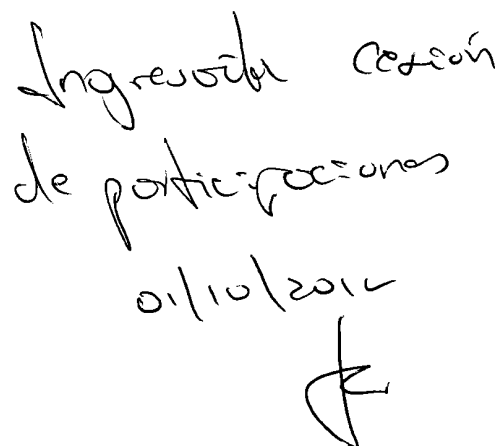 Ingresada cesión
de participaciones
01/10/2012